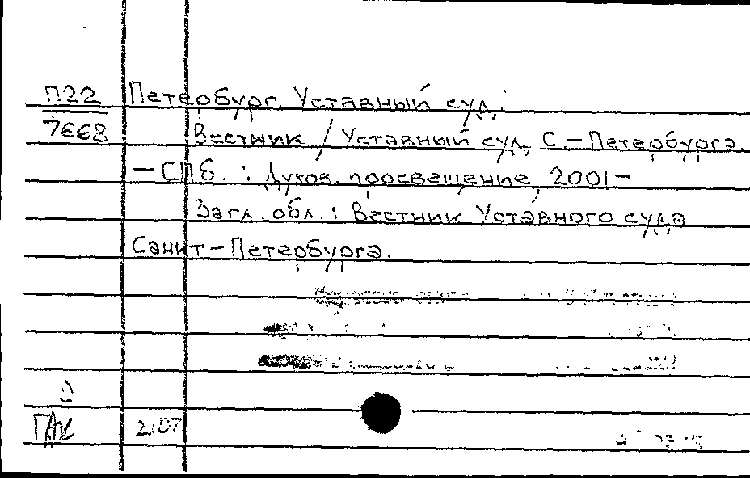 П22 Петербург. Уставный суд.
7668 Вестник / Уставный суд С.-Петербурга.
— СПб. : Духов. просвещение, 2001-
Загл. обл. : Вестник Уставного суда
Санкт-Петербурга.
2107